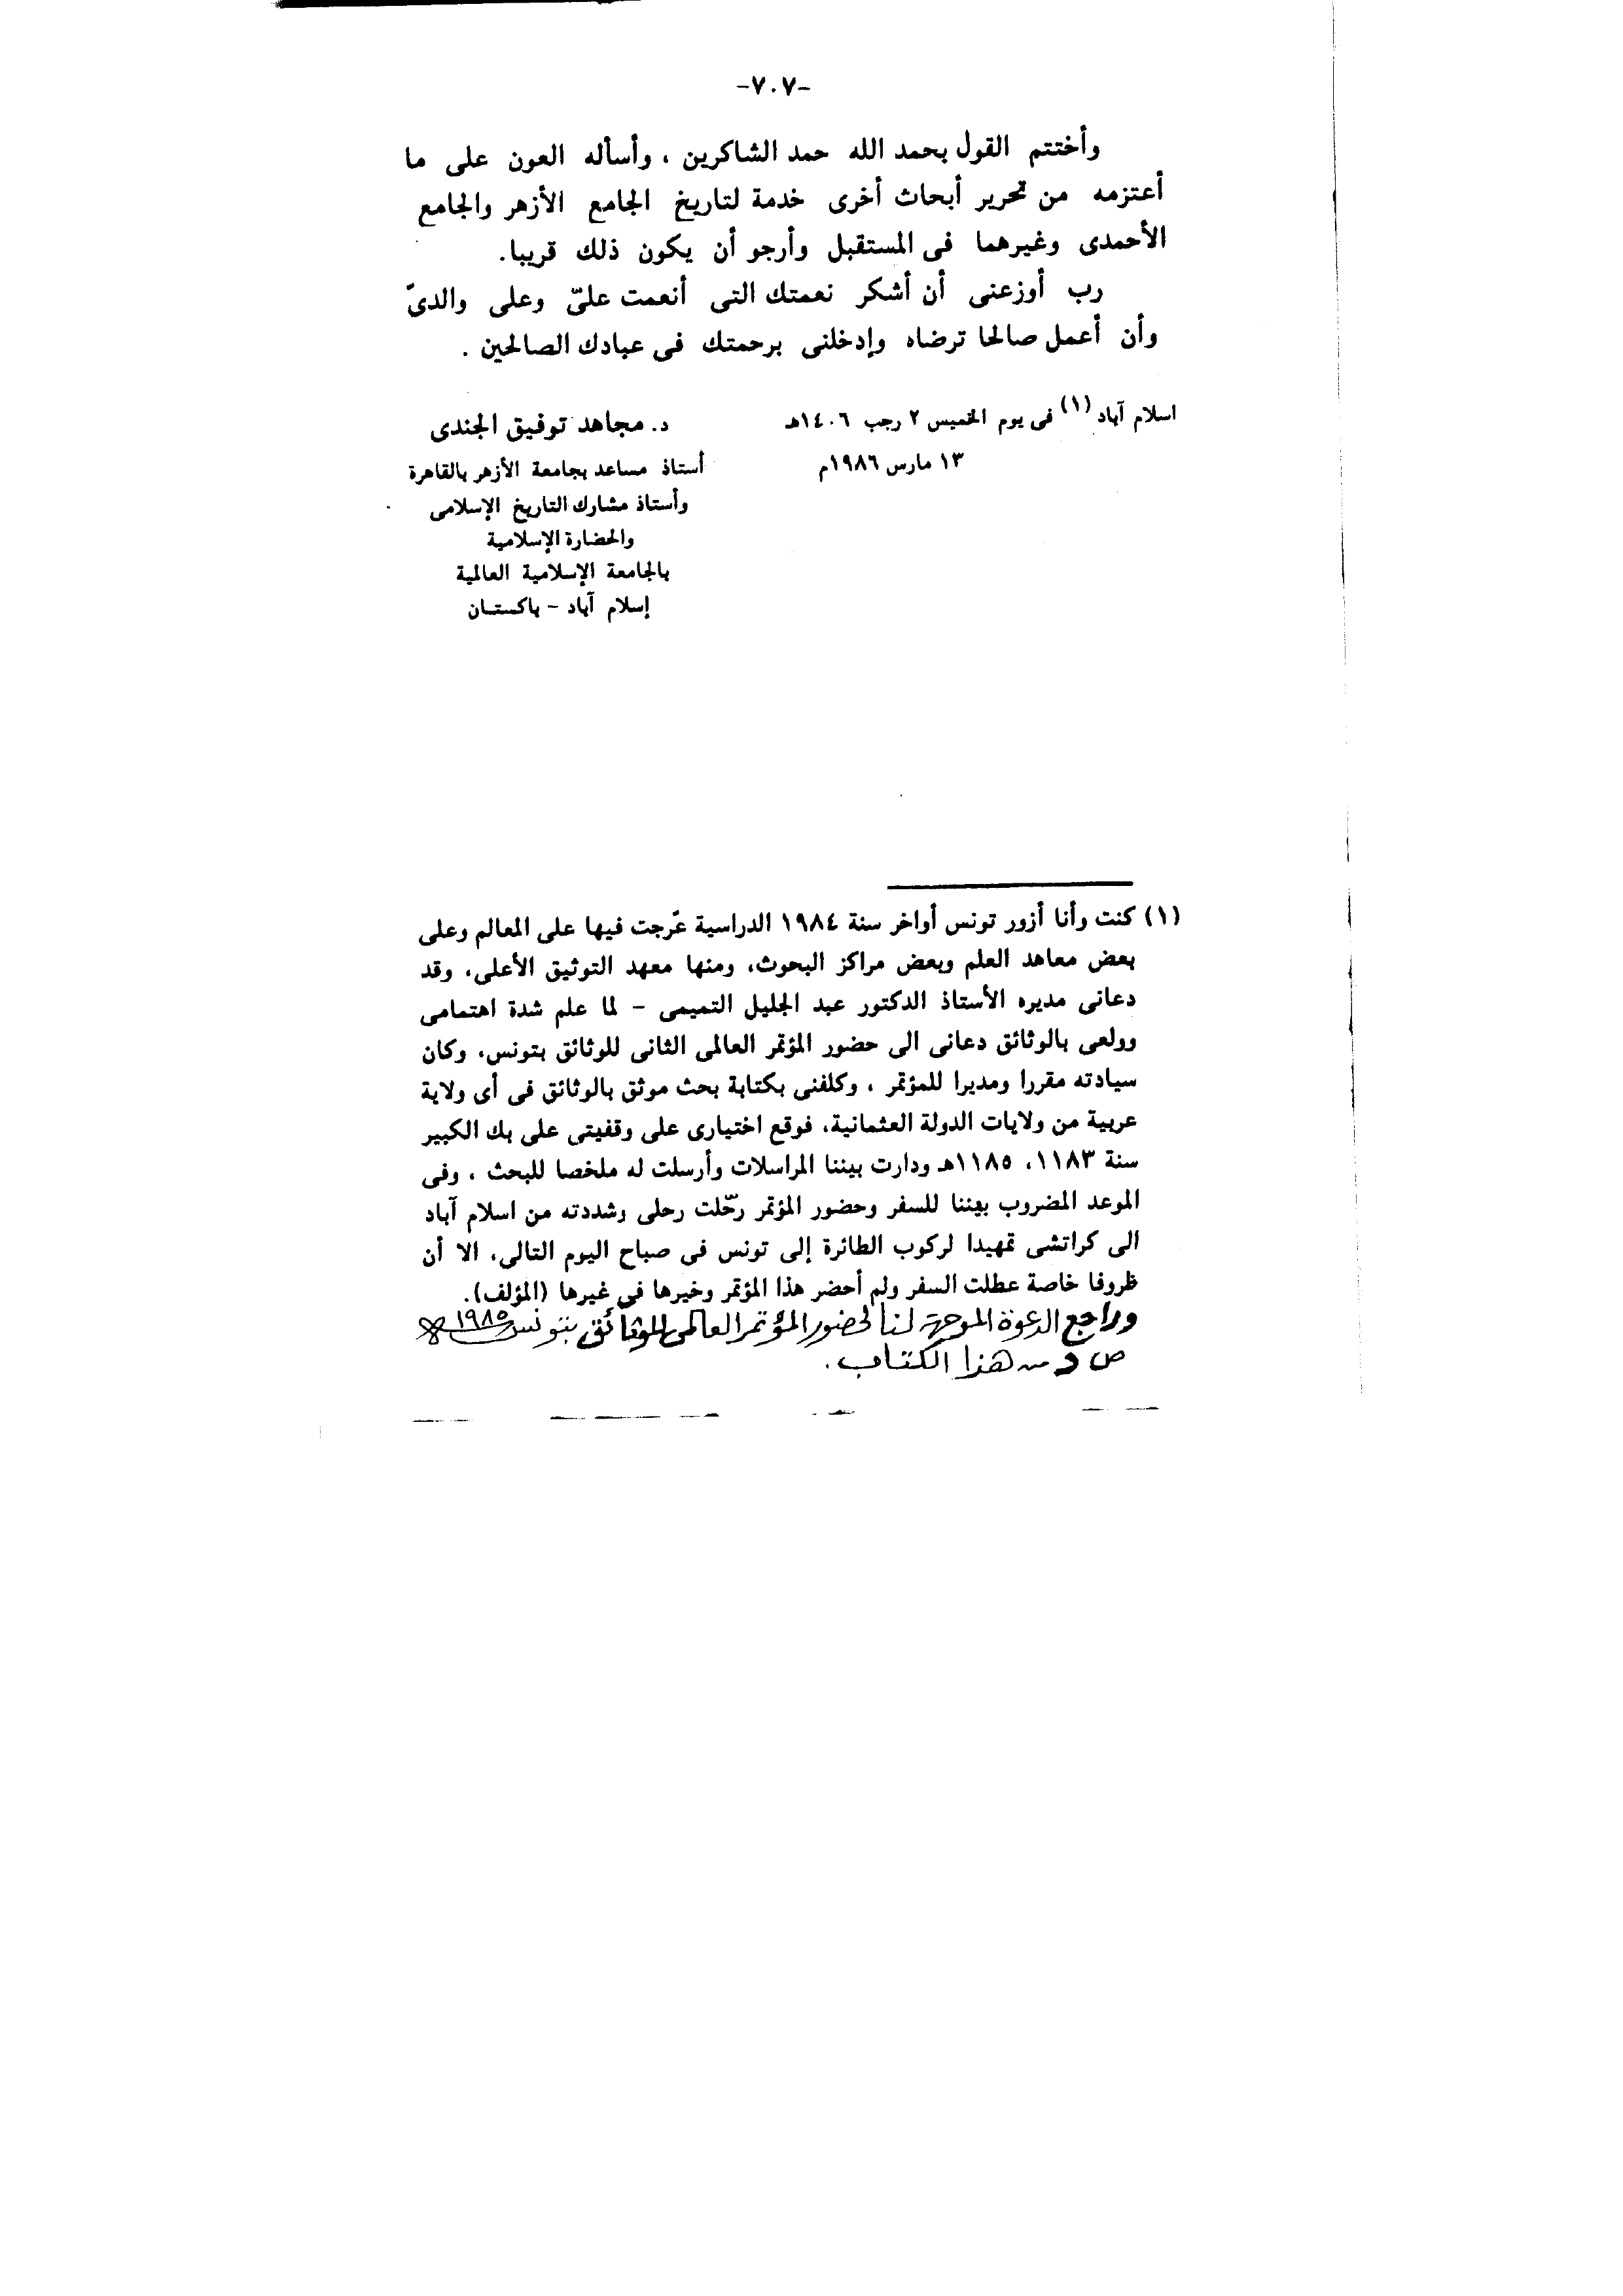 -٧٠٧-
وأختتم القول بحمد الله حمد الشاكرين ، وأسأله العون على ما
أعتزمه من تحرير أبحاث أخرى خدمة لتاريخ الجامع الأزهر والجامع
الأحمدى وغيرهما فى المستقبل وأرجو أن يكون ذلك قريبا.
رب أوزعنى أن أشكر نعمتك التى أنعمت علىّ وعلى والدىّ
وأن أعمل صالحا ترضاه وإدخلنى برحمتك فى عبادك الصالحين .
اسلام آباد (١) فى يوم الخميس ٢ رجب ١٤٠٦هـ
١٣ مارس ١٩٨٦م
د. مجاهد توفيق الجندى
أستاذ مساعد بجامعة الأزهر بالقاهرة
وأستاذ مشارك التاريخ الإسلامى
والحضارة الإسلامية
بالجامعة الإسلامية العالمية
إسلام آباد - باكستان
(١) كنت وأنا أزور تونس أواخر سنة ١٩٨٤ الدراسية عّرجت فيها على المعالم وعلى
بعض معاهد العلم وبعض مراكز البحوث، ومنها معهد التوثيق الأعلى، وقد
دعانى مديره الأستاذ الدكتور عبد الجليل التميمى - لما علم شدة اهتمامى
وولعى بالوثائق دعانى الى حضور المؤتمر العالمى الثانى للوثائق بتونس، وكان
سيادته مقررا ومديرا للمؤتمر ، وكلفنى بكتابة بحث موثق بالوثائق فى أى ولاية
عربية من ولايات الدولة العثمانية، فوقع اختيارى على وقفيتى على بك الكبير
سنة ١١٨٣، ١١٨٥هـ ودارت بيننا المراسلات وأرسلت له ملخصا للبحث ، وفى
الموعد المضروب بيننا للسفر وحضور المؤتمر رحّلت رحلى وشددته من اسلام آباد
الى كراتشى تمهيدا لركوب الطائرة إلى تونس فى صباح اليوم التالى، الا أن
ظروفا خاصة عطلت السفر ولم أحضر هذا المؤتمر وخيرها فى غيرها (المؤلف).
وراجع الدعوة الموجهة لنا لحضور المؤتمر العالمى للوثائق بتونس ١٩٨٥
ص د من هذا الكتاب .